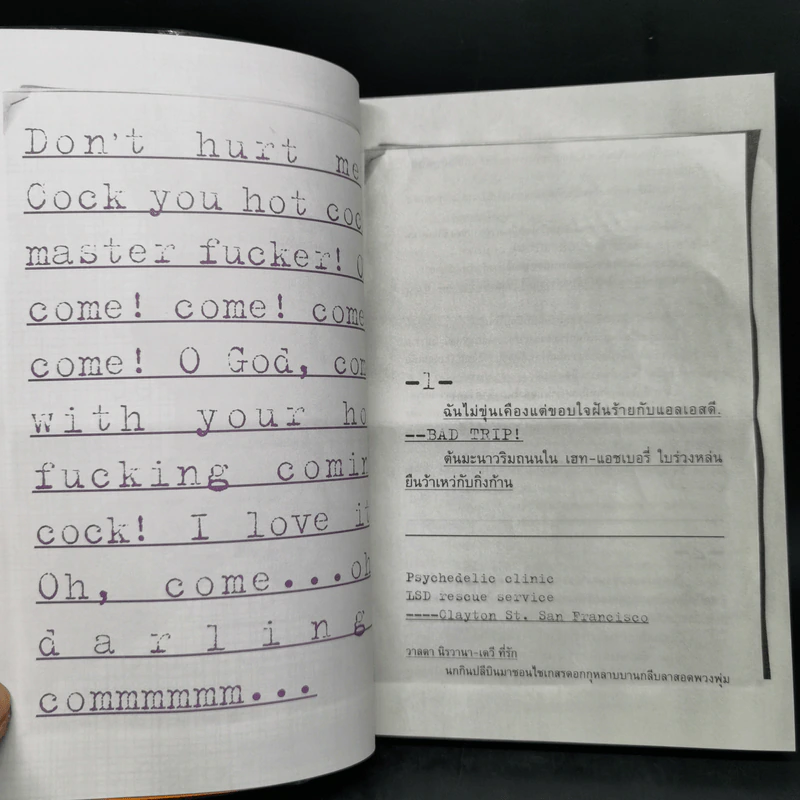 Don't hurt me
Cock you hot coc
master fucker! O
come! come! come
come! O God, com
with your ho
fucking comin
cock! I love it
Oh, come...oh
darling
commmmmm...
-1-
ฉันไม่ขุ่นเคืองแต่ขอบใจฝันร้ายกับแอลเอสดี.
--BAD TRIP!
ต้นมะนาวริมถนนใน เฮท-แอชเบอรี่ ใบร่วงหล่น
ยืนว้าเหว่กับกิ่งก้าน
Psychedelic clinic
LSD rescue service
----Clayton St. San Francisco
วาลดา นิรวานา-เดวี ที่รัก
นกกินปลีบินมาชอนไชเกสรดอกกุหลาบบานกลีบลาสอดพวงพุ่ม